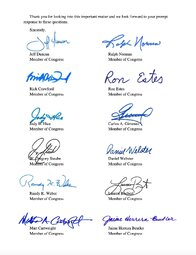 Thank you for looking into this important matter and we look forward to your prompt
response to these questions.
Sincerely,
Jeff Duncan
Member of Congress
Ralph Norman
Ralph Norman
Member of Congress
Rick Crawford
Member of Congress
Ron Estes
Ron Estes
Member of Congress
Jody B. Hice
Member of Congress
Carlos A. Gimenez
Member of Congress
W. Gregory Steube
Member of Congress
Daniel Webster
Daniel Webster
Member of Congress
Randy K. Weber
Randy K. Weber
Member of Congress
Member of Congress
Matt Cartwright
Matt Cartwright
Member of Congress
Jaime Herrera Beutler
Jaime Herrera Beutler
Member of Congress